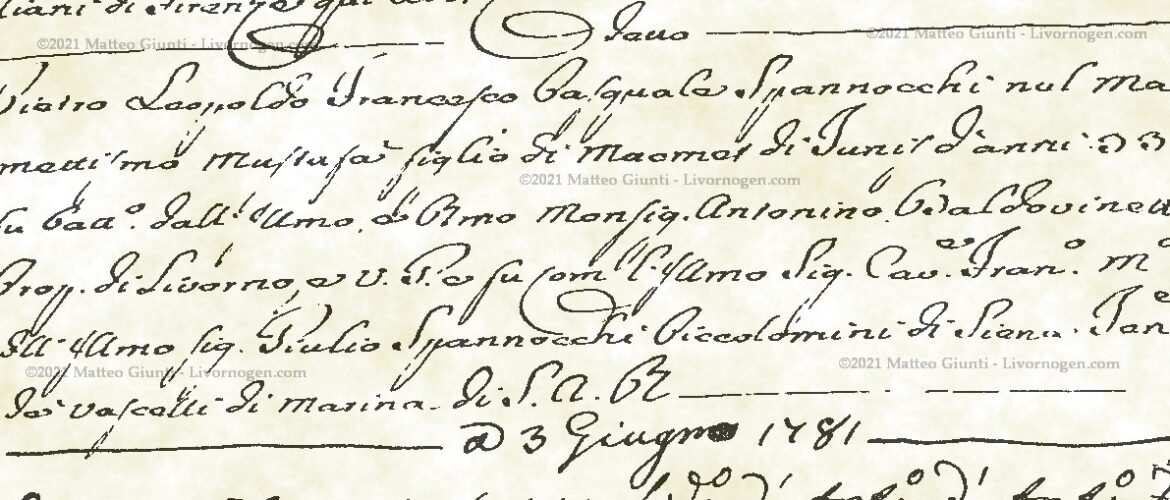 liani di Firenze
©2021 Matteo Giunti - Livornogen.com
©2021 Matteo Giunti - Livornogen.com
Pietro Leopoldo Francesco Pasquale Spannocchi nel Ma
mettismo Mustafà figlio di Maomet di Tunis d'anni 23
fu Batt.o dall' Ill'mo, e R'mo Monsig. Antonino Baldovinett
©2021 Matteo Giunti - Livornogen.com
Prop. di Livorno, e V. G. e fu Com. l' Ill'mo Sig. Cav.e Fran.o M.o
dell' Ill'mo Sig. Giulio Spannocchi Piccolomini di Siena
©2021 Matteo Giunti - Livornogen.com
©2021 Matteo Giunti - Livornogen.com
dei Vascelli di Marina di S. A. R.
a 3 Giugno 1781